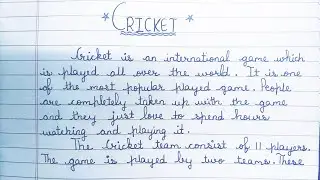 CRICKET
Cricket is an international game which
is played all over the world. It is one
of the most popular played game. People
are completely taken up with the game
and they just love to spend hours
watching and playing it.
The Cricket team consist of 11 players.
The game is played by two teams. These